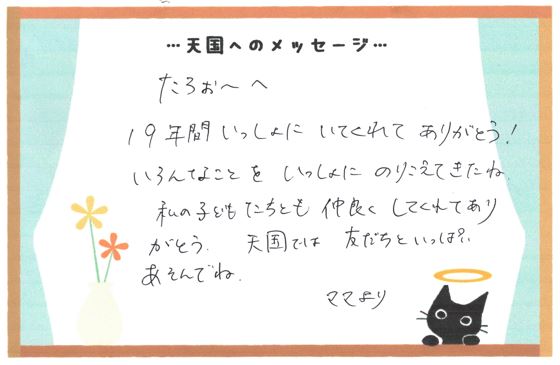 …天国へのメッセージ…
たろぉ〜へ
19年間いっしょにいてくれてありがとう!
いろんなことをいっしょにのりこえてきたね.
私の子どもたちとも仲良くしてくれてあり
がとう. 天国では友だちといっぱい
あそんでね.
ママより